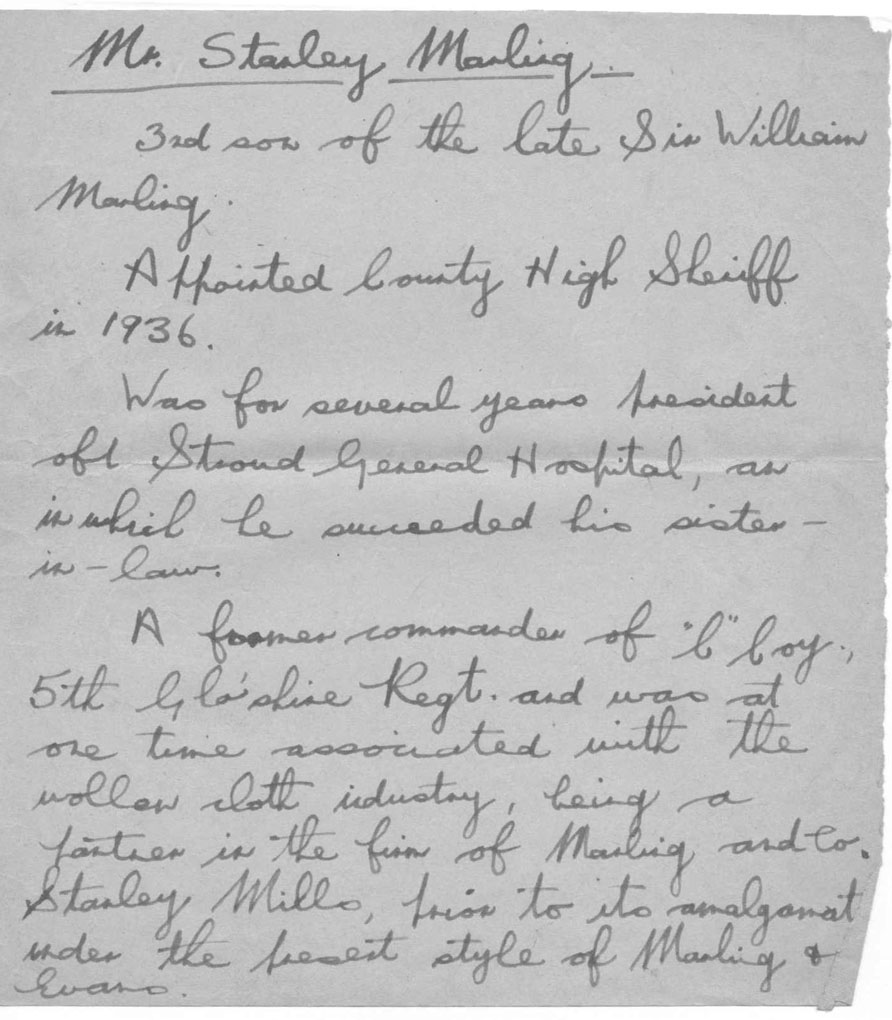 Mr. Stanley Marling.
3rd son of the late Sir William
Marling.
Appointed County High Sheriff
in 1936.
Was for several years president
of Stroud General Hospital, an
in which he succeeded his sister-
in-law.
A former commander of "C" Coy.,
5th Glo'shire Regt. and was at
one time associated with the
wollen cloth industry, being a
partner in the firm of Marling and Co.
Stanley Mills, prior to its amalgamat
under the present style of Marling &
Evans.